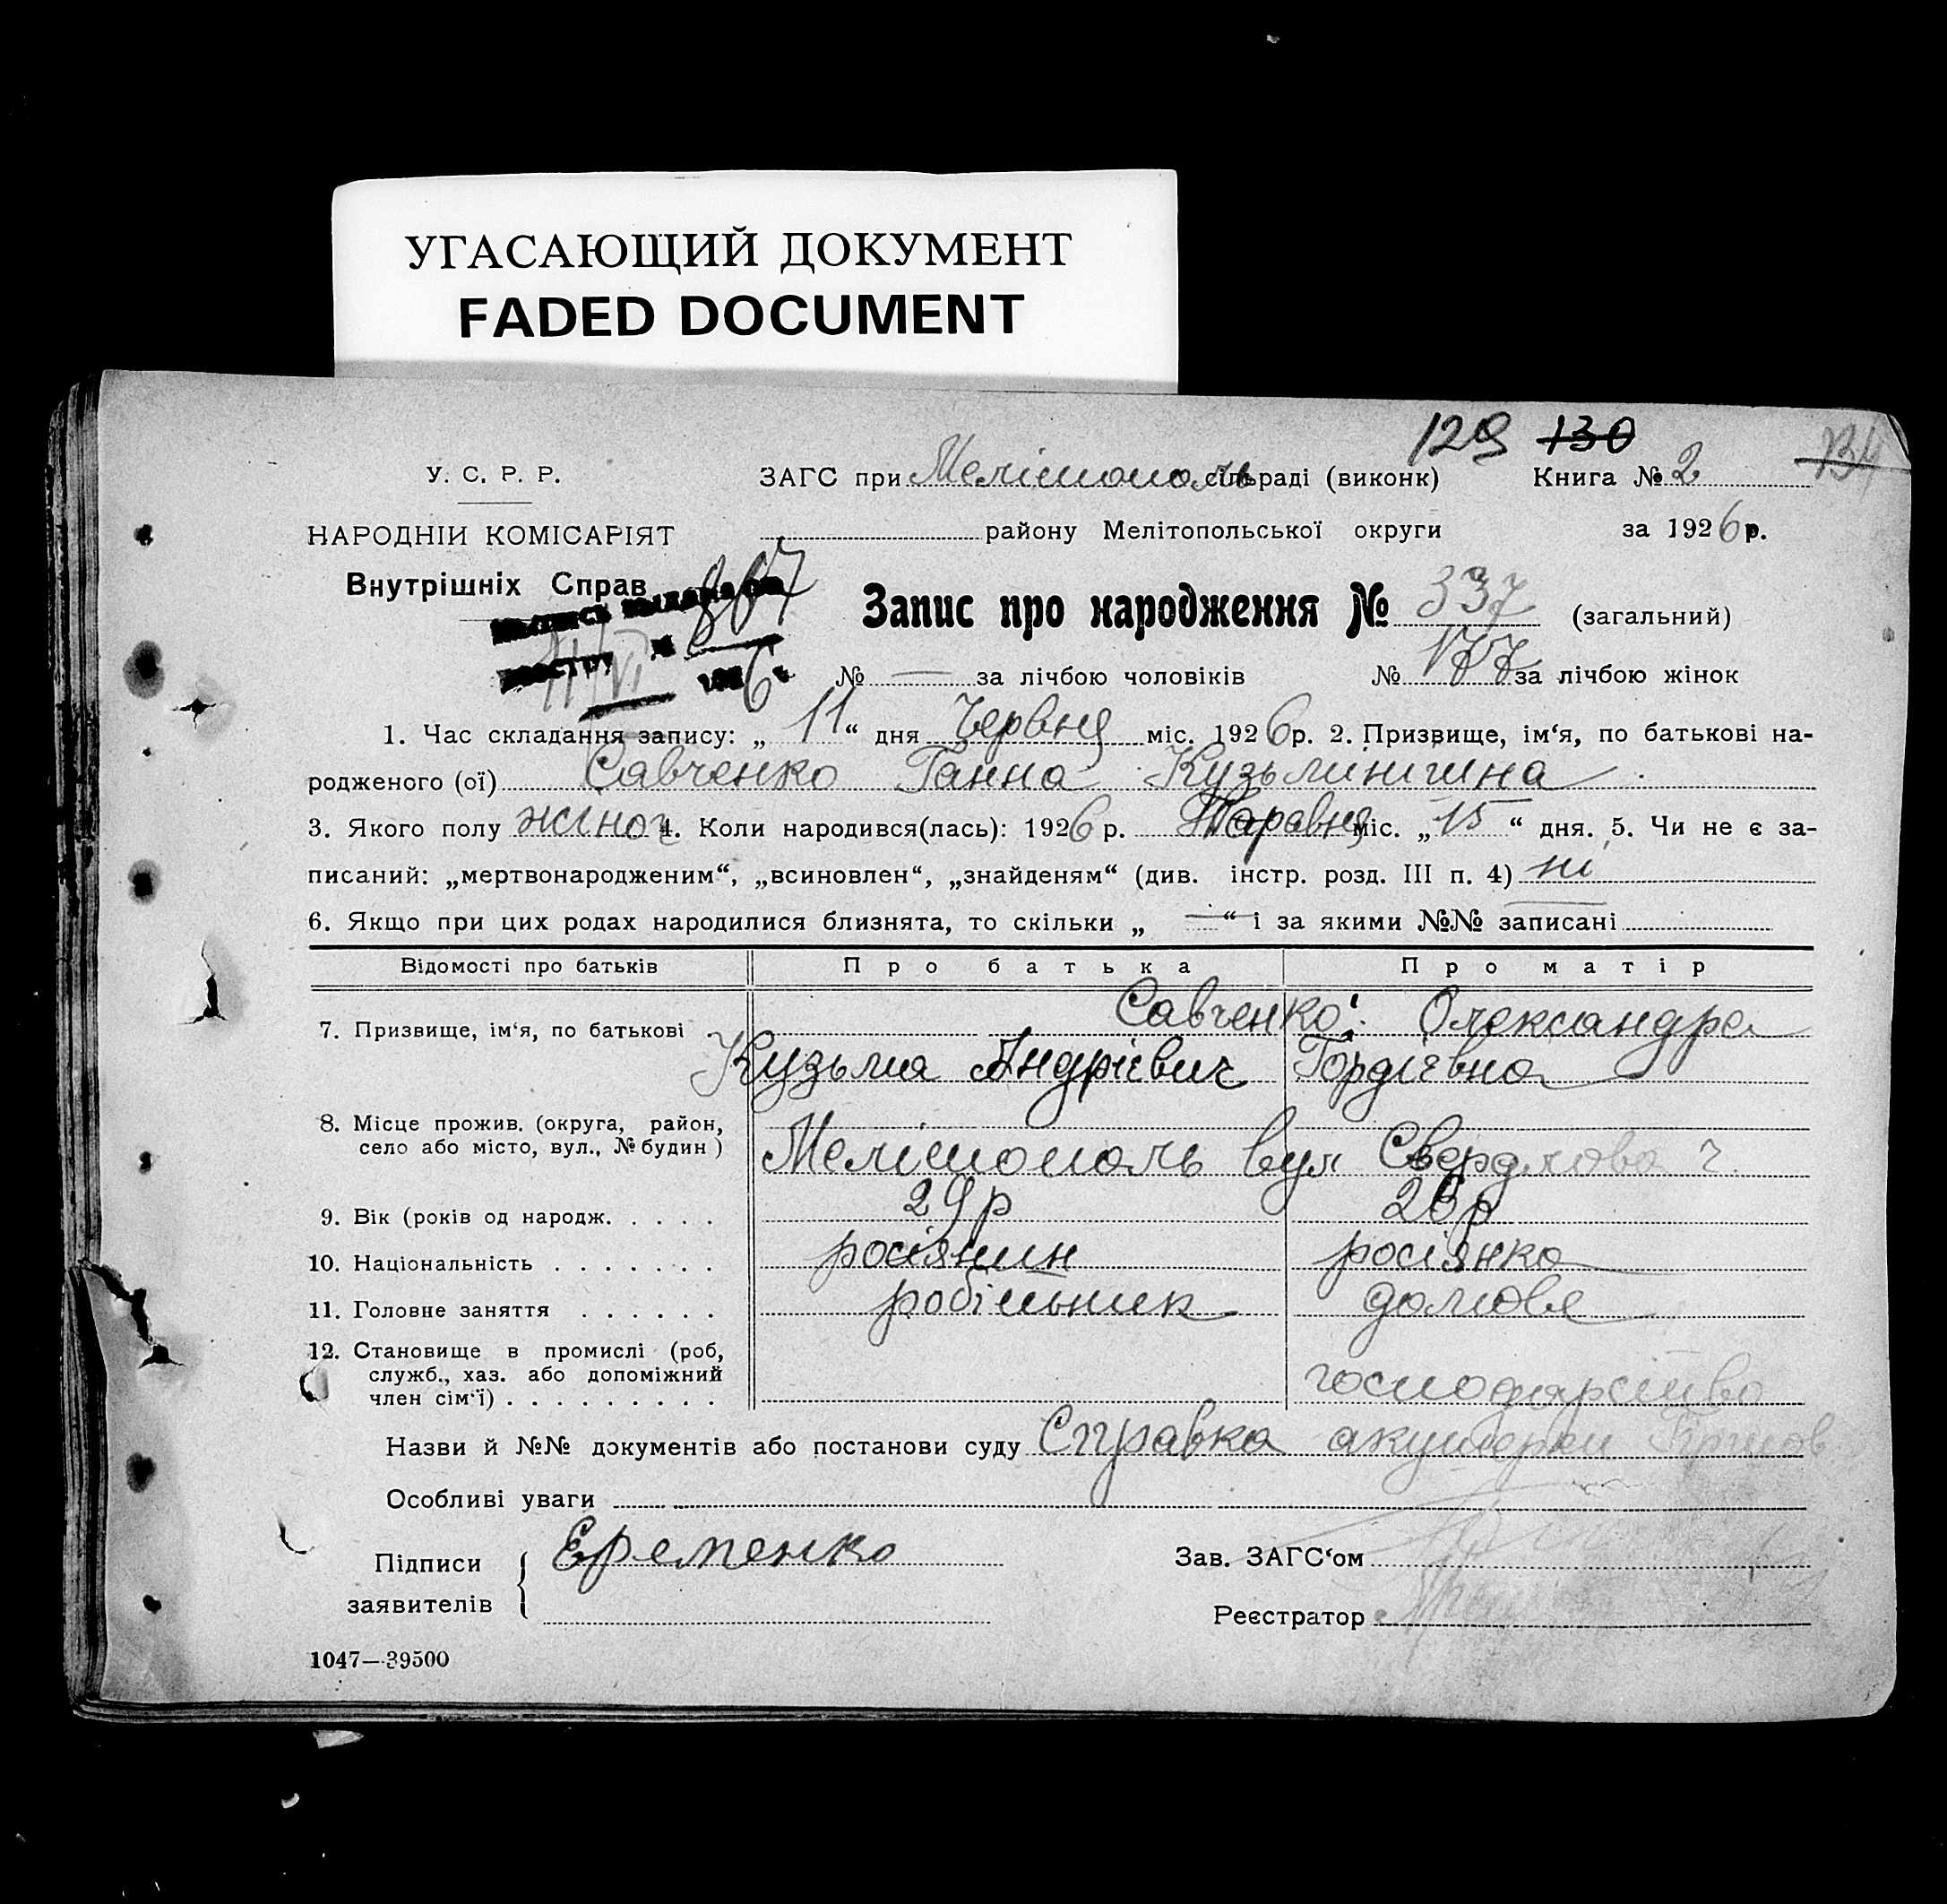 УГАСАЮЩИЙ ДОКУМЕНТ
FADED DOCUMENT
129 130 134
У. С. Р. Р.
ЗАГС при Мелітополь сільраді (виконк) Книга № 2
НАРОДНІЙ КОМІСАРІЯТ
району Мелітопольської округи за 1926 р.
Внутрішніх Справ
867
Запис про народження № 337 (загальний)
11/VI 1926 г.
№ — за лічбою чоловіків № 177 за лічбою жінок
1. Час складання запису: „ 11 “ дня Червня міс. 1926 р. 2. Призвище, ім‘я, по батькові на-
родженого (ої) Савченко Ганна Кузьминішна
3. Якого полу жіноч 4. Коли народився(лась): 1926 р. Таравня міс. „ 15 “ дня. 5. Чи не є за-
писаний: „мертвонародженим“, „всиновлен“, „знайденям“ (див. інстр. розд. III п. 4) ні
6. Якщо при цих родах народилися близнята, то скільки „ — “ і за якими №№ записані
Відомості про батьків Про батька Про матір
7. Призвище, ім‘я, по батькові Савченко: Олександра
Кузьма Андрієвич Гордієвна
8. Місце прожив. (округа, район,
село або місто, вул., № будин) Мелітополь вул Свердлова
9. Вік (років од народж. . . . . 29 р 26 р
10. Національність . . . . . . . росіянин росіянка
11. Головне заняття . . . . . . робітьник домове
12. Становище в промислі (роб,
служб., хаз. або допоміжний господарство
член сім‘ї) . . . . . . . . .
Назви й №№ документів або постанови суду Справка акушерки
Особливі уваги
Підписи Еременко Зав. ЗАГС‘ом
заявителів Реєстратор
1047—39500